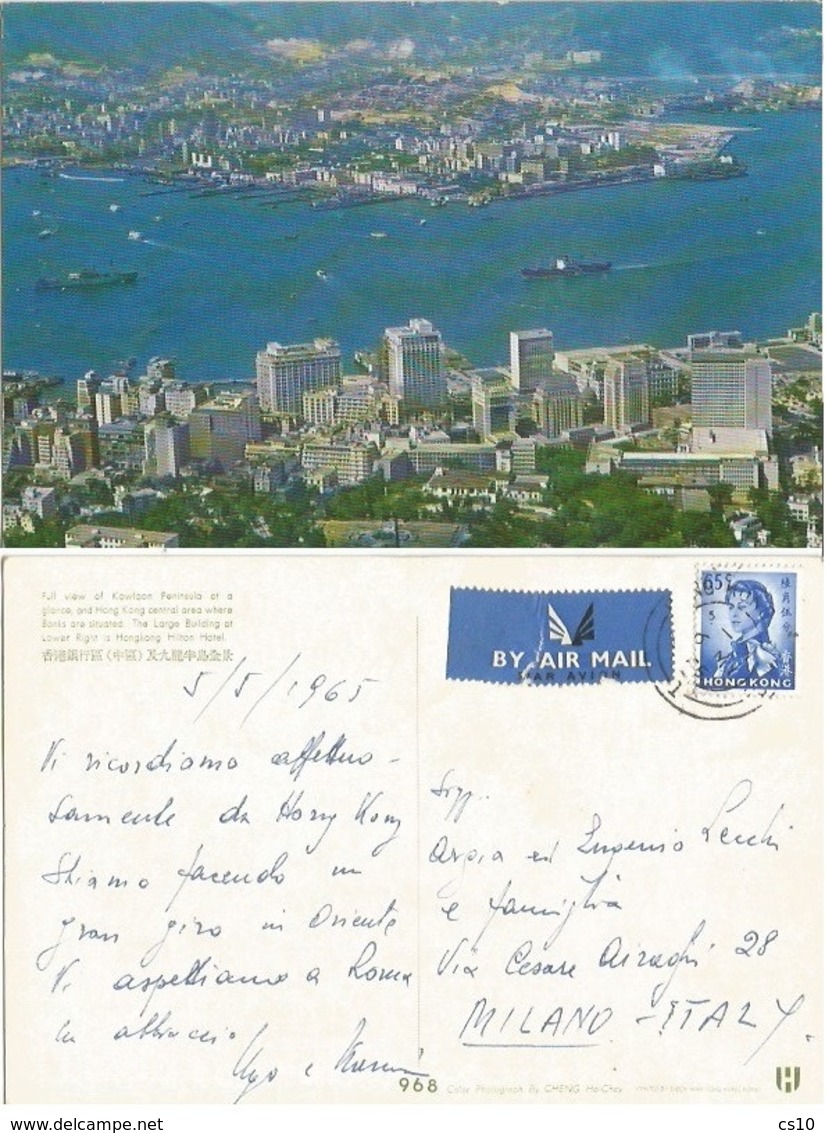 Full view of Kowloon Peninsula at a
glance, and Hong Kong central area where
Banks are situated. The Large Building at
Lower Right is Hongkong Hilton Hotel.
香港銀行區（中區）及九龍半島全景
BY AIR MAIL
PAR AVION
65c
香港
HONG KONG
5/5/1965
Vi ricordiamo affettuo-
samente da Hong Kong
Stiamo facendo un
gran giro in Oriente
Vi aspettiamo a Roma
Un abbraccio
Ugo e
Sigg.
Argia ed Eugenio Lecchi
e famiglia
Via Cesare Airaghi 28
MILANO - ITALY.
968 Color Photograph By CHENG Ho-Choy
cs10